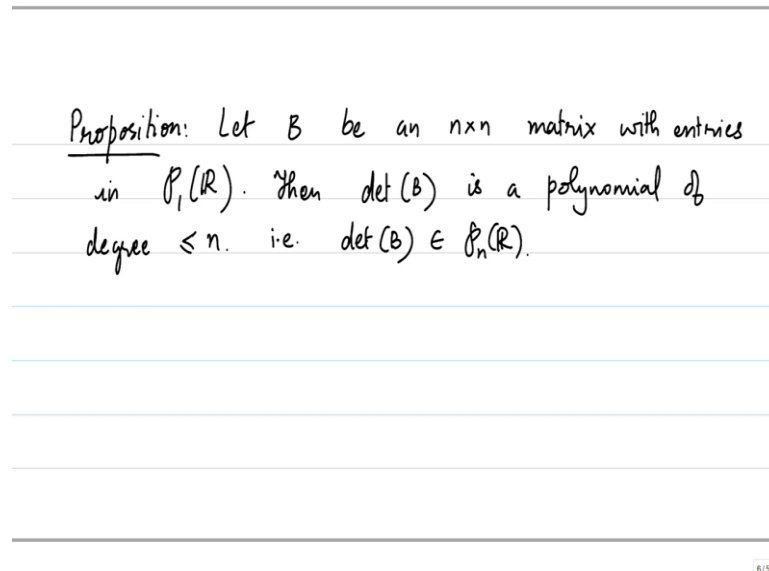 Proposition: Let B be an n×n matrix with entries
in P₁(ℝ). Then det(B) is a polynomial of
degree ≤ n. i.e. det(B) ∈ Pₙ(ℝ).